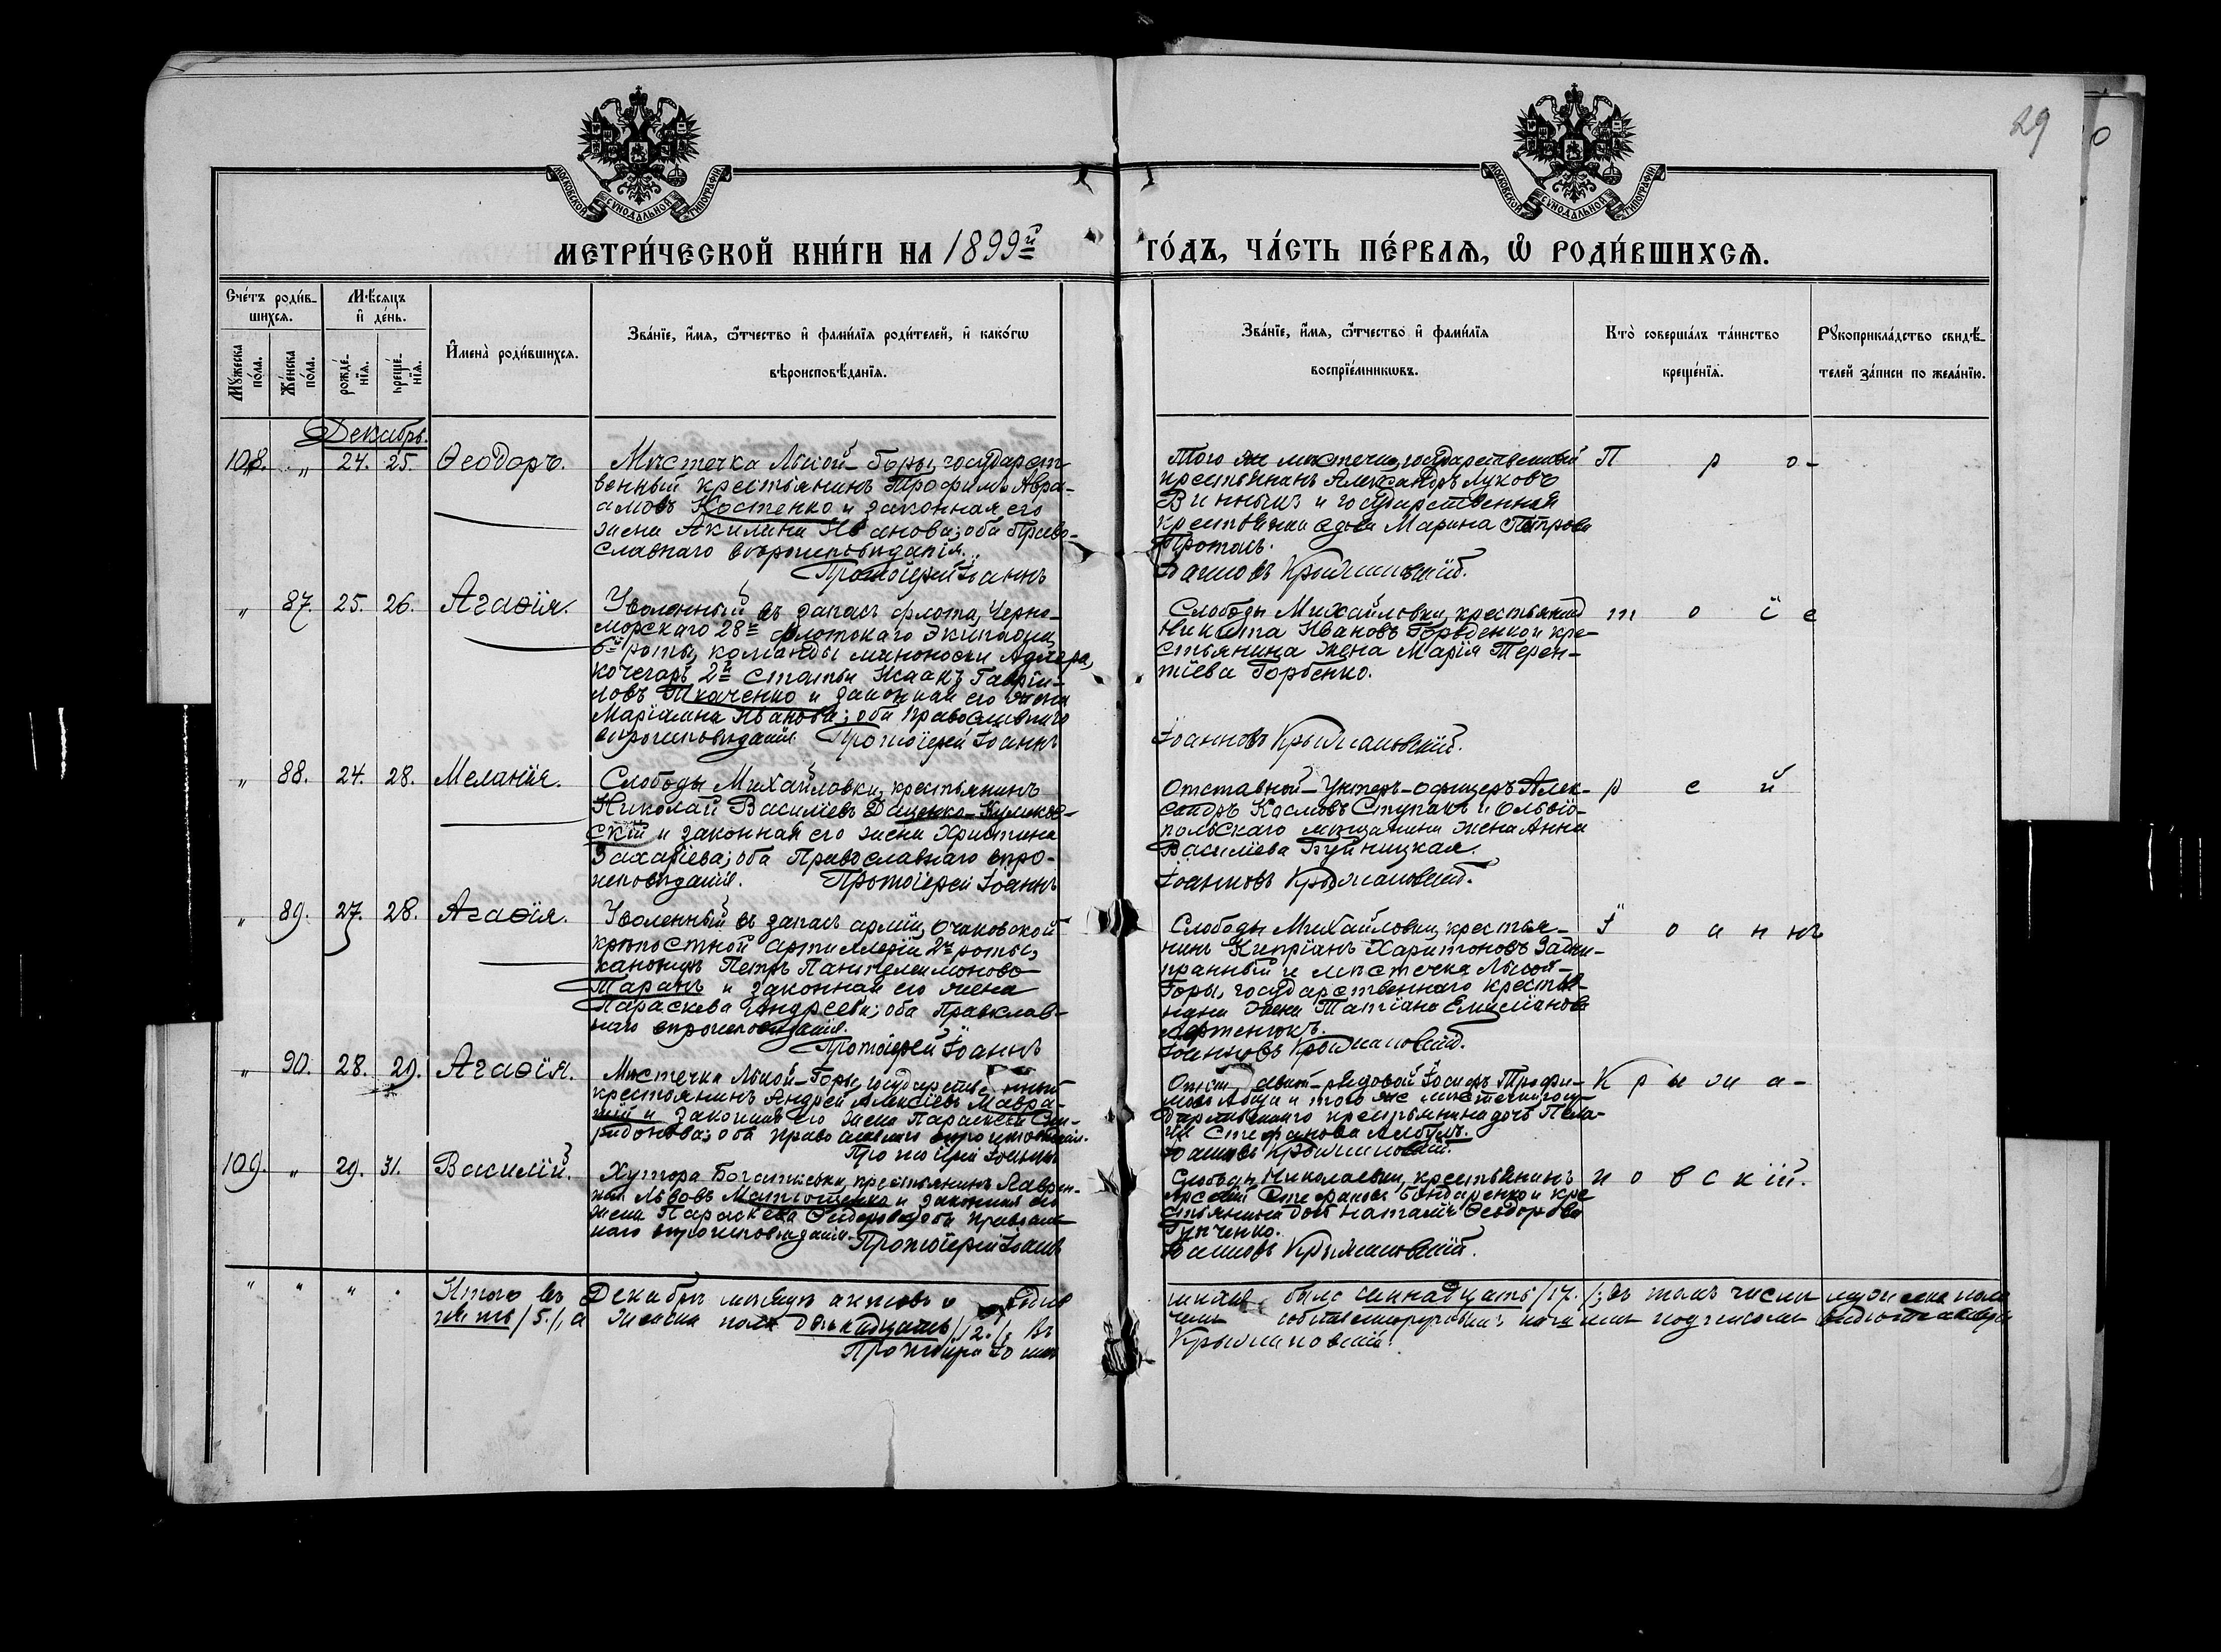 29
МОСКОВСКОЙ СѴНОДАЛЬНОЙ ТИПОГРАФІИ
МОСКОВСКОЙ СѴНОДАЛЬНОЙ ТИПОГРАФІИ
МЕТРИ́ЧЕСКОЙ КНИ́ГИ НА 1899й
ГО́ДЪ, ЧА́СТЬ ПЕ́РВАѦ, Ѡ РОДИ́ВШИХСѦ.
Сче́тъ роди́в-
шихсѧ.
Мꙋ́жеска по́ла.
Же́нска по́ла.
Мѣ́сѧцъ
и҆ де́нь.
рожде́-нїѧ.
креще́-нїѧ.
И҆мена̀ роди́вшихсѧ.
Зва́нїе, и҆́мѧ, ѻ҆́тчество и҆ фами́лїѧ роди́телей, и҆ како́гѡ
вѣроисповѣ́данїѧ.
Зва́нїе, и҆́мѧ, ѻ҆́тчество и҆ фами́лїѧ
воспрїе́мникѡвъ.
Кто̀ соверша́лъ та́инство
креще́нїѧ.
Рꙋкоприкла́дство свидѣ́-
телей за́писи по жела́нїю.
Декабрь.
108. „ 24. 25. Ѳеодоръ.
Мѣстечка Лысой-Горы, государст-
венный крестьянинъ Трофимъ Авра-
амовъ Костенко и законная его
жена Акилина Иванова; оба Право-
славнаго вѣроисповѣданія.
Протоіерей Іоаннъ
Того же мѣстечка, государственный
крестьянинъ Александръ Луковъ
Винникъ и государственная
крестьянская Марина Петрова
Іоанновъ Крыжановскій.
П р о-
„ 87. 25. 26. Агаѳія.
Уволенный въ запасъ флота, Черно-
морскаго 28го флотскаго Экипажа
роты, команды миноноски Адлеръ,
кочегаръ 2й статьи Исаакъ Гаврии-
ловъ Ткаченко и законная его жена
Маріамна Иванова; оба Православнаго
вѣроисповѣданія. Протоіерей Іоаннъ
Слободы Михайловки, крестьянинъ
Никита Ивановъ и кре-
стьянина жена Марія Терен-
тіева Горбенко.
Іоанновъ Крыжановскій.
т о і е
„ 88. 24. 28. Меланія.
Слободы Михайловки, крестьянинъ
Николай Василіевъ Даценко-Куликов-
скій и законная его жена Христина
Захаріева; оба Православнаго вѣро-
исповѣданія. Протоіерей Іоаннъ
Отставной-Унтеръ-офицеръ Алек-
сандръ Космовъ Ступакъ и Ольвіо-
польскаго мѣщанина жена Анна
Василіева Буйницкая.
Іоанновъ Крыжановскій.
р е й
„ 89. 27. 28. Агаѳія.
Уволенный въ запасъ арміи, Очаковской
крѣпостной артиллеріи 2й роты,
канониръ Петръ Пантелеимоновъ
Таранъ и законная его жена
Параскева Андреева; оба Православ-
наго вѣроисповѣданія.
Протоіерей Іоаннъ
Слободы Михайловки, крестья-
нинъ Кипріанъ Харитоновъ
и мѣстечка Лысой-
Горы, государственнаго крестья-
нина жена Татіана Емиліанова
Іоанновъ Крыжановскій.
І о а н нъ
„ 90. 28. 29. Агаѳія.
Мѣстечка Лысой-Горы, государственный
крестьянинъ Андрей Алексіевъ
и законная его жена Параскева Спи-
ридонова; оба Православнаго вѣроисповѣданія.
Протоіерей Іоаннъ
рядовой Іосифъ Трофи-
мовъ и того же мѣстечка госу-
дарственнаго крестьянина дочь Пела-
гія Стефанова
Іоанновъ Крыжановскій.
К р ы ж а-
109. „ 29. 31. Василій.
Хутора крестьянинъ Лаврен-
тій Львовъ Матюшенко и законная его
жена Параскева Сидорова; оба Православ-
наго вѣроисповѣданія. Протоіерей Іоаннъ
Слободы Николаевки, крестьянинъ
Арсеній Стефановъ Бондаренко и кре-
стьянина дочь Наталія Ѳеодорова
Іоанновъ Крыжановскій.
н о в с к ій.
„ „ „ „ Итого въ Декабрѣ мѣсяцѣ актовъ о родив-
шихся было семнадцать /17./; въ томъ числѣ мужеска пола
пять /5./, а женска пола двѣнадцать /12./. Въ
чемъ собственноручнымъ нашимъ подписомъ
Протоіерей Іоаннъ
Крыжановскій.